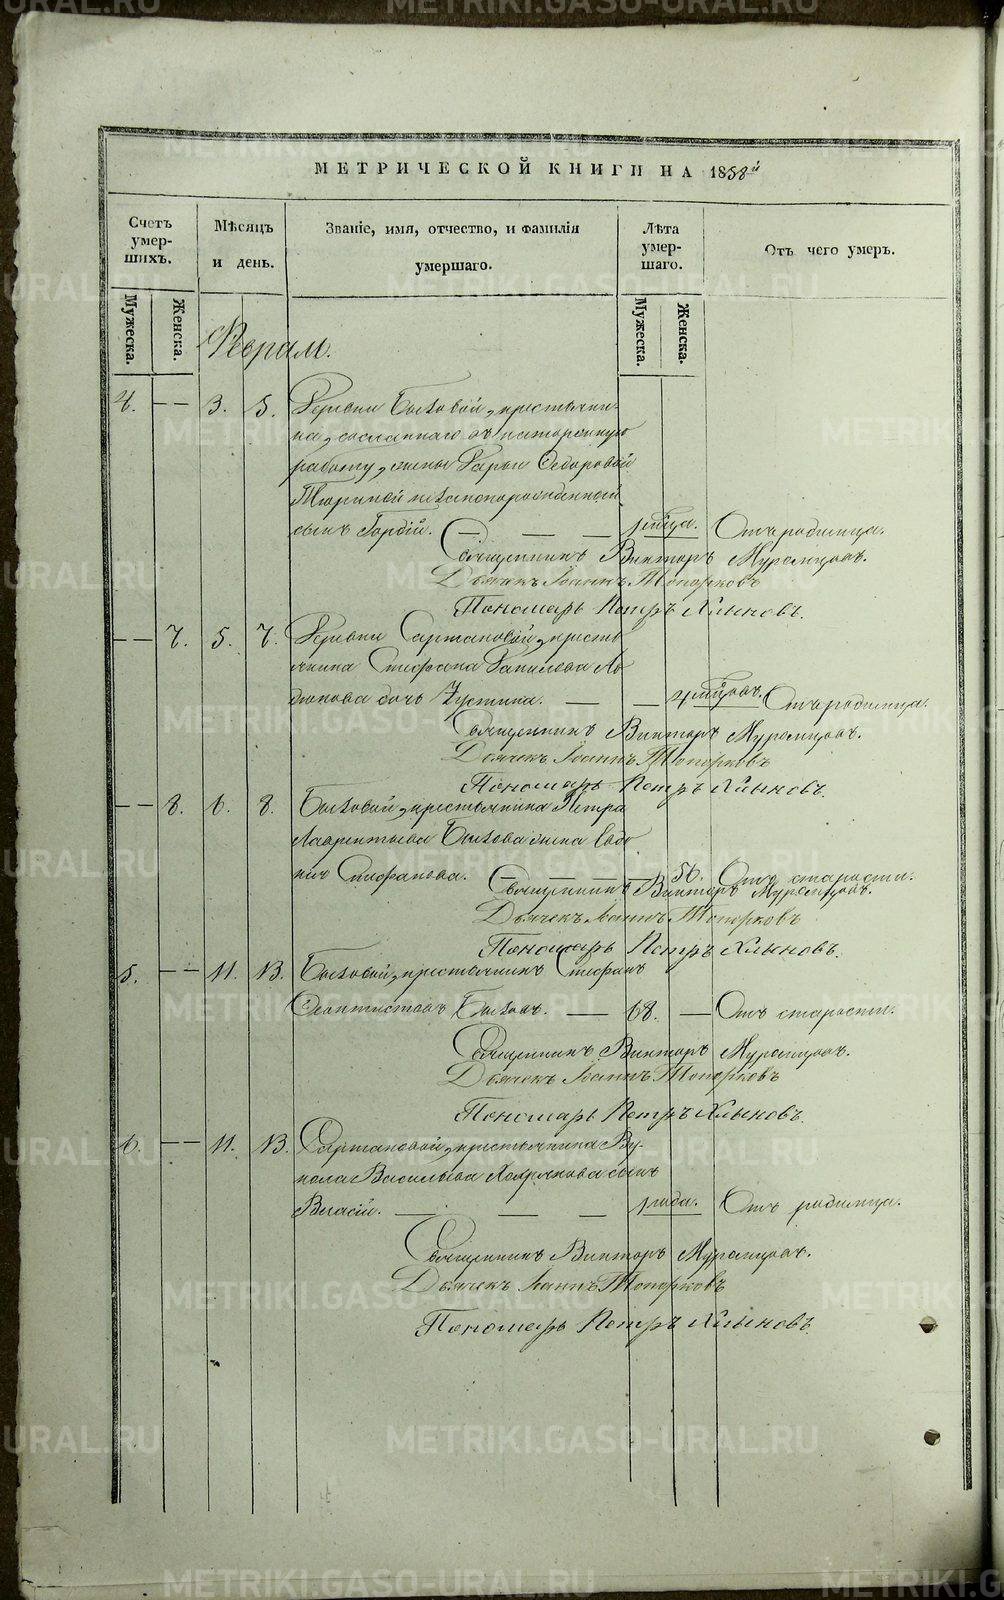 МЕТРИЧЕСКОЙ КНИГИ НА 1858й
Счетъ умер-шихъ.
Мѣсяцъ и день.
Званіе, имя, отчество, и фамилія умершаго.
Лѣта умер-шаго.
Отъ чего умеръ.
Мужеска. Женска. Мужеска. Женска.
Феврал.
4. — — 3. 5. Деревни Быковой, крестьяни-
на, сосланнаго въ каторжную
работу, жены Дарьи Федоровой
Тюриной незаконорожденный
сынъ Гордій. — — — 1 мѣца. Отъ родимца.
Священникъ Викторъ Муромцовъ.
Дьячекъ Іоаннъ Топорковъ
Пономарь Петръ Хлыновъ.
— — 7. 5. 7. Деревни Сартаковой, кресть
янина Стефана Данилова
дочь Устина. — — 4 мѣцовъ. Отъ родимца.
Священникъ Викторъ Муромцовъ.
Дьячекъ Іоаннъ Топорковъ
Пономарь Петръ Хлыновъ.
— — 8. 6. 8. Быковой, крестьянина Петра
Лаврентьева Быкова жена
Стефанова. — — — 56. Отъ старости.
Священникъ Викторъ Муромцовъ.
Дьячекъ Іоаннъ Топорковъ
Пономарь Петръ Хлыновъ.
5. — — 11. 13. Быковой, крестьянинъ Стефанъ
Феоктистовъ Быковъ. — 68. — Отъ старости.
Священникъ Викторъ Муромцовъ.
Дьячекъ Іоаннъ Топорковъ
Пономарь Петръ Хлыновъ.
6. — — 11. 13. Сартаковой, крестьянина Ву-
кола Васильева сынъ
Власій. — — — 1 года. Отъ родимца.
Священникъ Викторъ Муромцовъ.
Дьячекъ Іоаннъ Топорковъ
Пономарь Петръ Хлыновъ.
METRIKI.GASO-URAL.RU